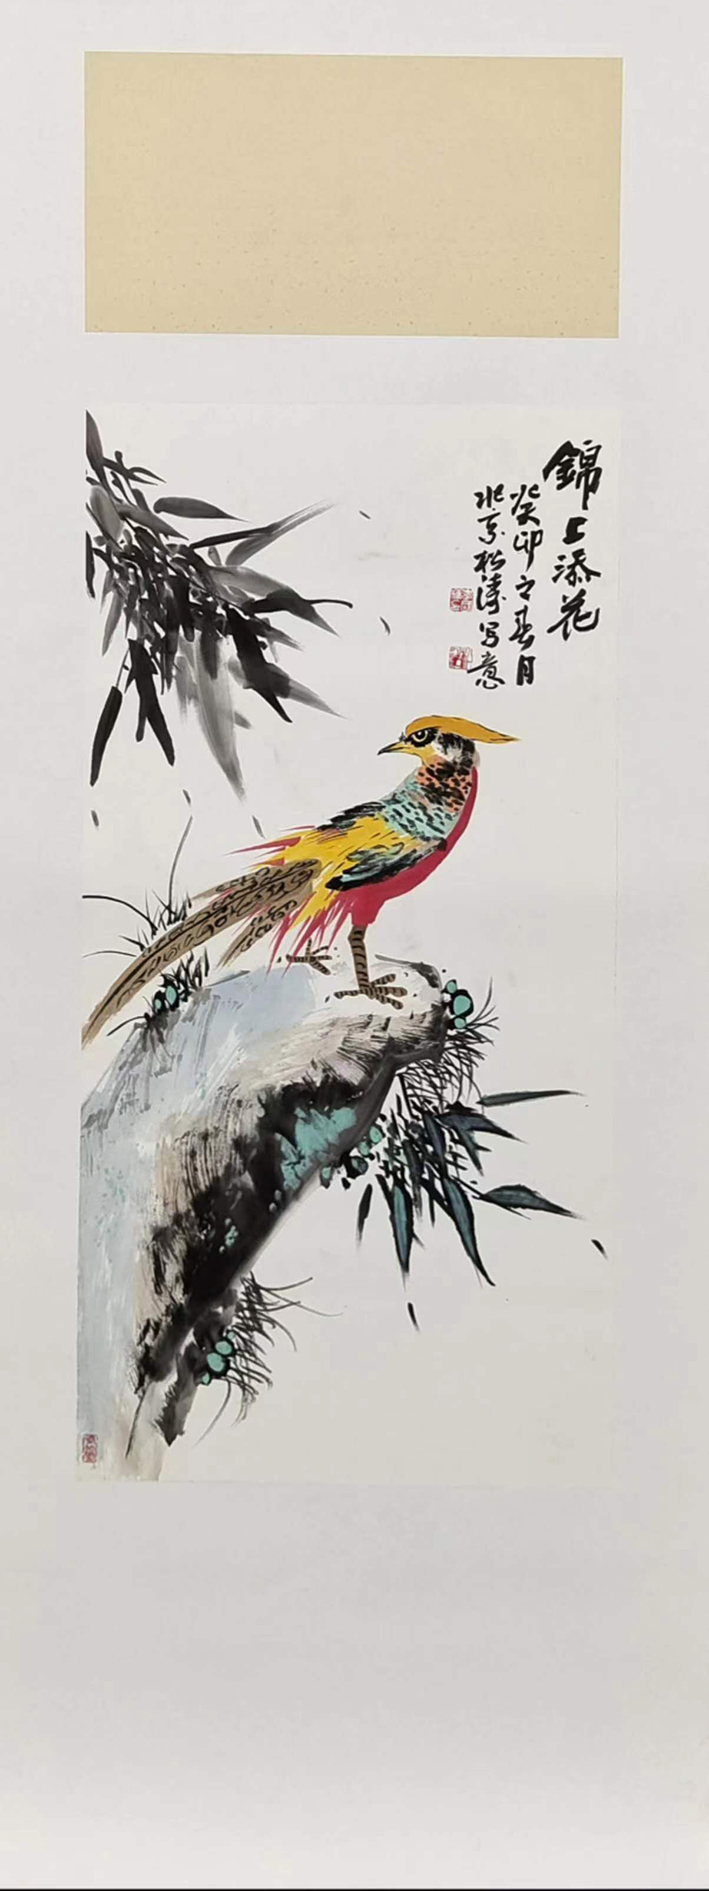 錦上添花
癸卯之春月
北京松濤写意